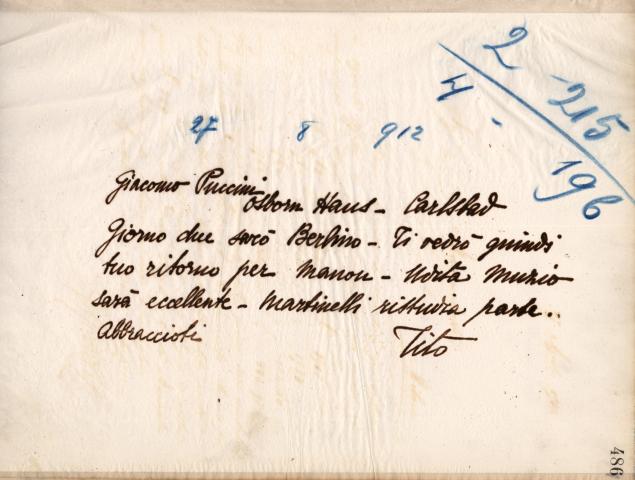 2 - 215
W - 196
27 8 912
Giacomo Puccini
Osborn Haus - Carlstad
Giorno due sarò Berlino - Ti vedrò quindi
tuo ritorno per Manon - Udita Muzio
sarà eccellente - Martinelli ristudia parte.
Abbraccioti Tito
486